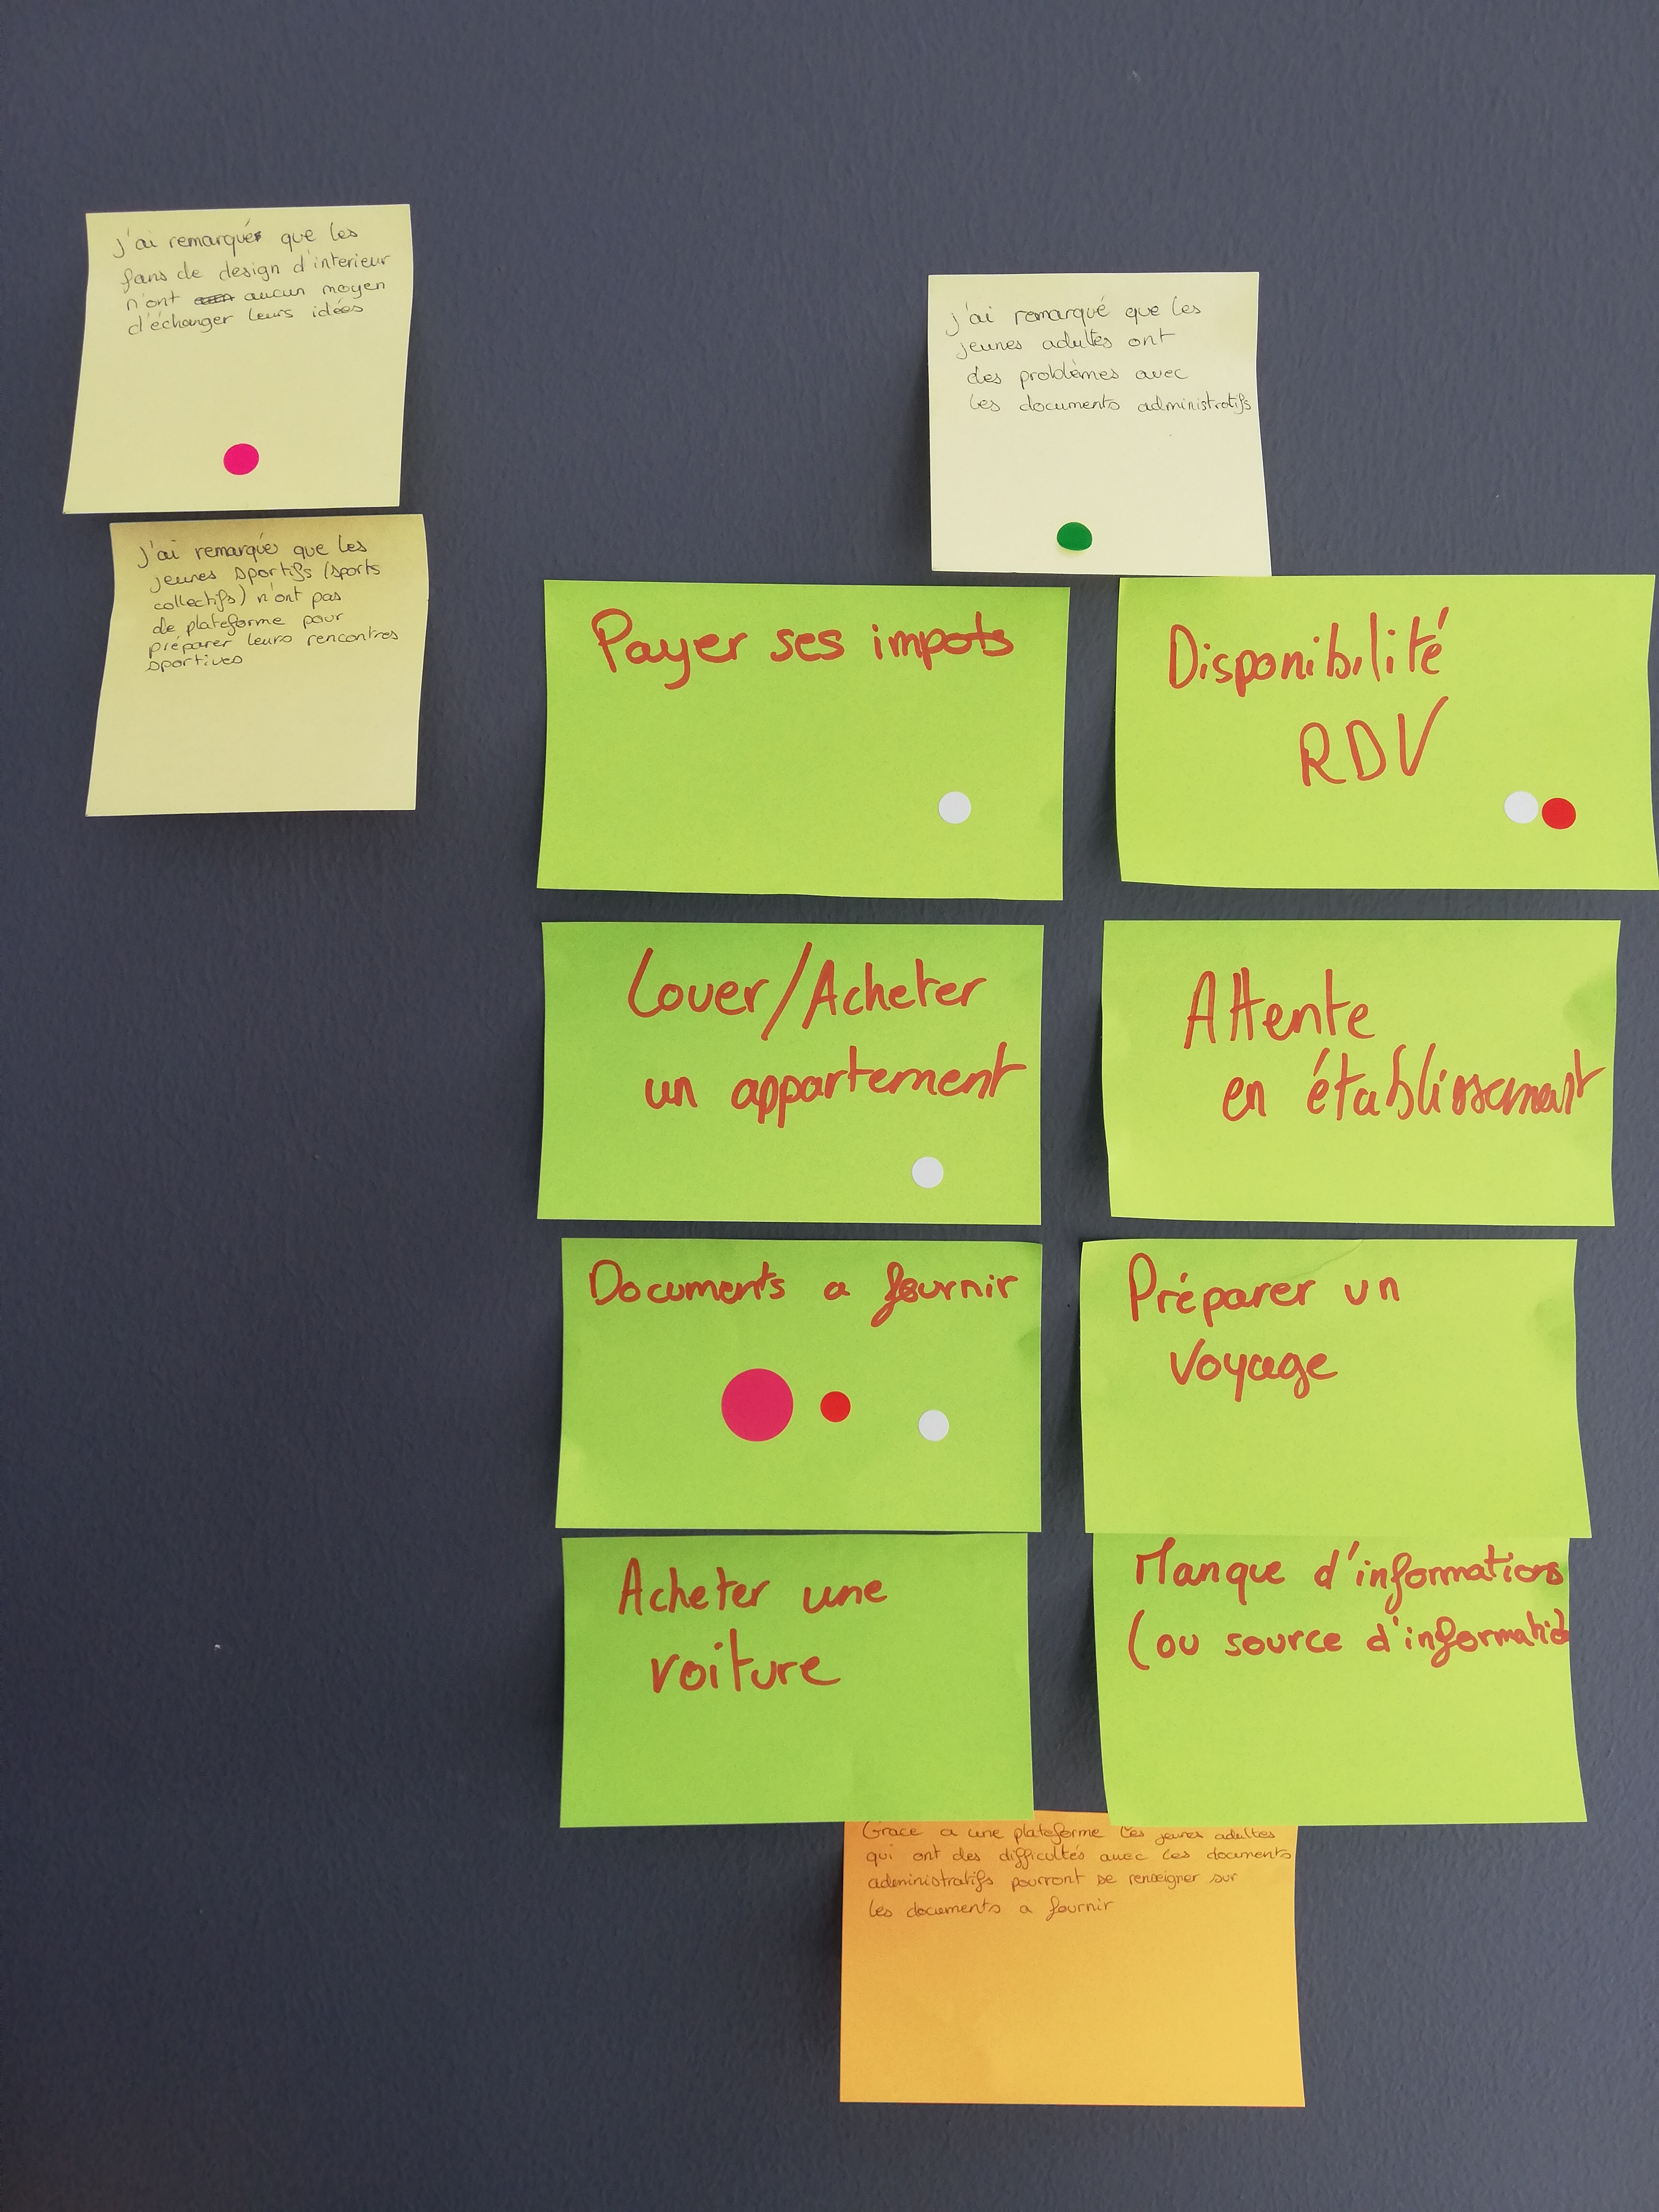 j'ai remarqué que les
fans de design d'interieur
n'ont aucun moyen
d'échanger leurs idées
j'ai remarqué que les
jeunes sportifs (sports
collectifs) n'ont pas
de plateforme pour
préparer leurs rencontres
sportives
j'ai remarqué que les
jeunes adultes ont
des problèmes avec
les documents administratifs
Payer ses impots
Disponibilité
RDV
Louer/Acheter
un appartement
Attente
en établissement
Documents a fournir
Préparer un
voyage
Acheter une
voiture
Manque d'informations
(ou source d'informatio
Grace a une plateforme les jeunes adultes
qui ont des difficultés avec les documents
administratifs pourront se renseigner sur
les documents a fournir